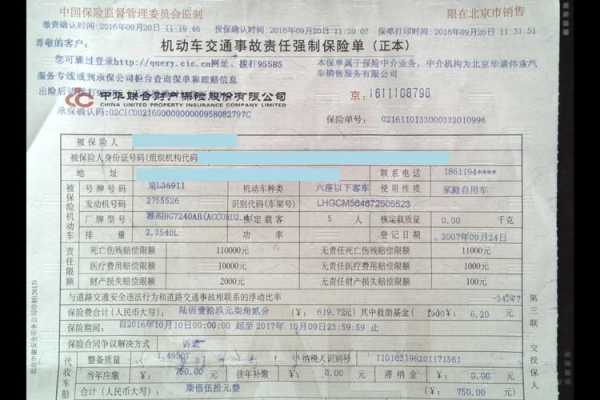 中国保险监督管理委员会监制 限在北京市销售
缴费确认时间:2016年09月20日 11:19:46 投保确认时间:2016年09月20日 11:30:07 保单打印时间:2016年09月20日 11:31:51
尊敬的客户:
机动车交通事故责任强制保险单(正本)
您可通过登录http://query.cic.cn网址、拨打95585
服务专线或到承保公司柜台查询保单和赔偿信息
本保单属于保险中介业务,中介机构为北京华
汽车销售服务有限公司
中华联合财产保险股份有限公司
CHINA UNITED PROPERTY INSURANCE COMPANY LIMITED
京:1611108790
承保确认码:
保险单号:
被保险人
被保险人身份证号码(组织机构代码
地 址 联系电话 1861194****
被保险机动车
号牌号码 机动车种类 六座以下客车 使用性质 家庭自用车
发动机号码 2755526 识别代码(车架号) LHGCM564872505523
厂牌型号 核定载客 5 人 核定载质量 0.00 千克
排 量 2.3540L 功 率 登记日期 2007年09月24日
责任限额
死亡伤残赔偿限额 110000元 无责任死亡伤残赔偿限额 11000元
医疗费用赔偿限额 10000元 无责任医疗费用赔偿限额 1000元
财产损失赔偿限额 2000元 无责任财产损失赔偿限额 100元
与道路交通安全违法行为和道路交通事故相联系的浮动比率
保险费合计(人民币大写): 陆佰壹拾玖元柒角贰分 (¥: 619.72元) 其中救助基金( ¥: 6.20 元
保险期间: 自2016年10月10日00:00:00 起至 2017年10月09日23:59:59 止
保险合同争议解决方式 诉讼
代收车船
整备质量 纳税人识别号
当年应缴 ¥: 750.00 元 往年补缴 ¥: 0.00 元 滞纳金 ¥: 0.00 元
合计(人民币大写): 柒佰伍拾元整 ¥: 750.00 元
第三联 交投保人